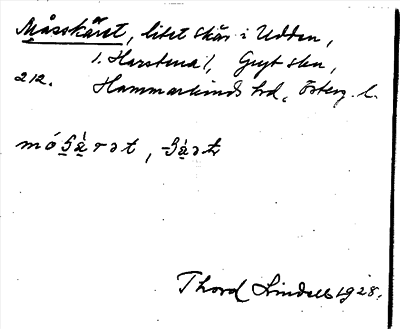 Måsskäret, litet skär i Udden,
1. Harstena/, Gryt skn,
212. Hammarkinds hd, Österg. l.
Thord Lindell 1928.